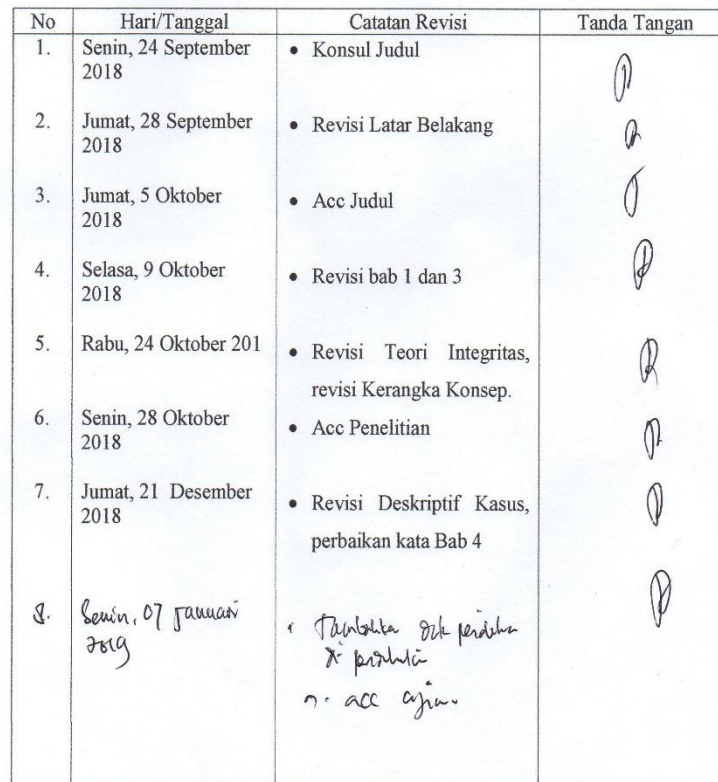 No Hari/Tanggal Catatan Revisi Tanda Tangan
1. Senin, 24 September • Konsul Judul
2018
2. Jumat, 28 September • Revisi Latar Belakang
2018
3. Jumat, 5 Oktober • Acc Judul
2018
4. Selasa, 9 Oktober • Revisi bab 1 dan 3
2018
5. Rabu, 24 Oktober 201 • Revisi Teori Integritas,
revisi Kerangka Konsep.
6. Senin, 28 Oktober • Acc Penelitian
2018
7. Jumat, 21 Desember • Revisi Deskriptif Kasus,
2018
perbaikan kata Bab 4
8. Senin, 07 Januari
2019
acc